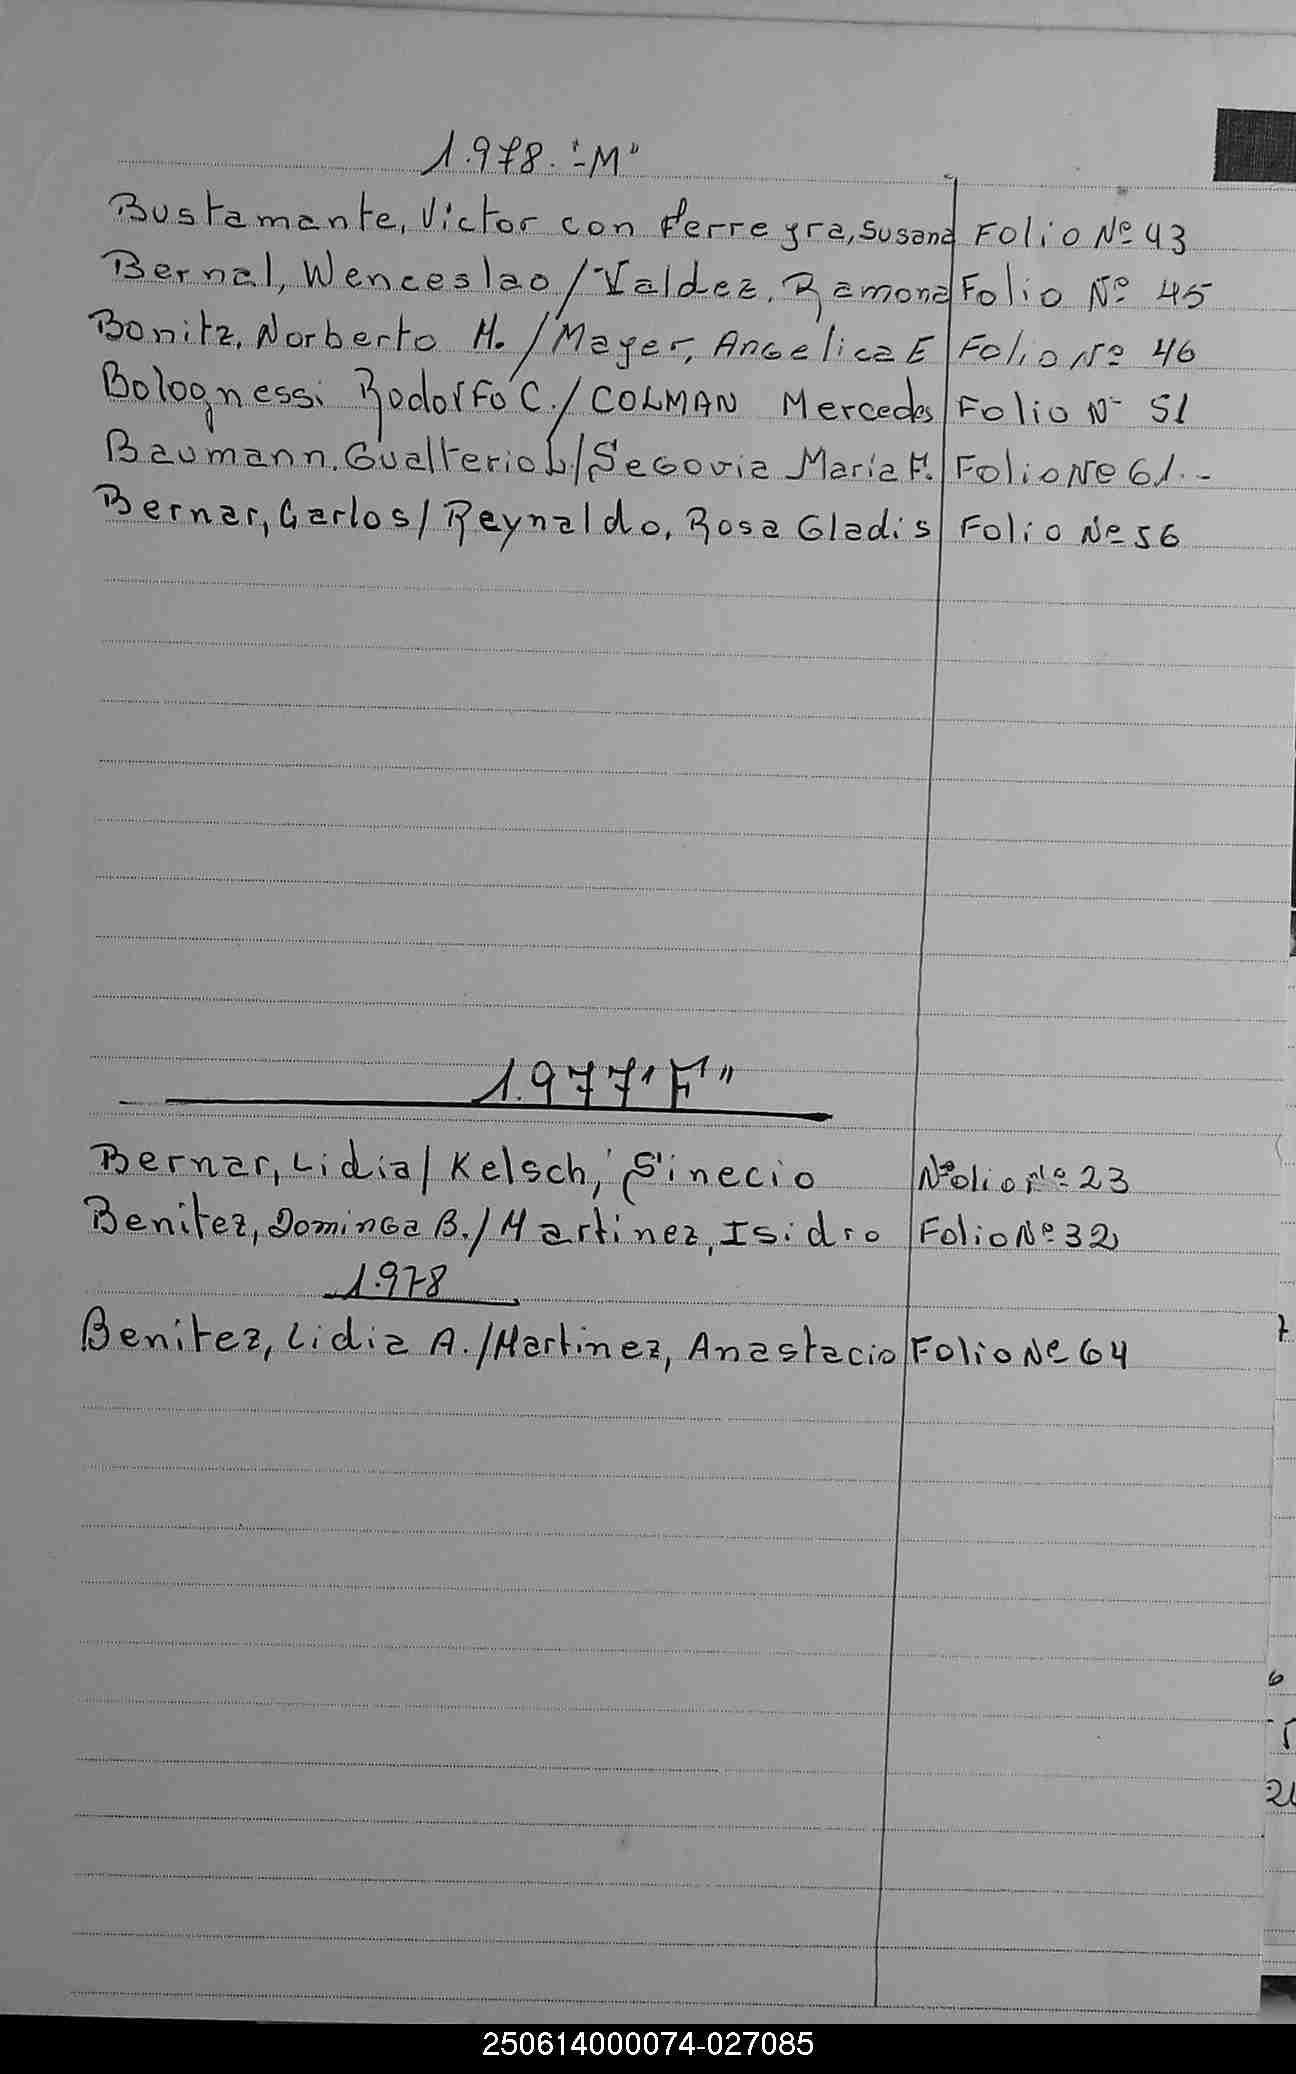 1.978. "M"
Bustamante, Victor con Ferreyra, Susana Folio Nº 43
Bernal, Wenceslao / Valdez, Ramona Folio Nº 45
Bonitz, Norberto H. / Mayer, Angelica E Folio Nº 46
Bolognessi Rodolfo C. / COLMAN Mercedes Folio Nº 51
Baumann, Gualterio L / Segovia Maria F. Folio Nº 61.-
Bernar, Carlos / Reynaldo, Rosa Gladis Folio Nº 56
1.977 "F"
Bernar, Lidia / Kelsch, Sinecio Nºolio Nº 23
Benitez, Dominga B. / Martinez, Isidro Folio Nº 32
1.978
Benitez, Lidia A. / Martinez, Anastacio Folio Nº 64
250614000074-027085